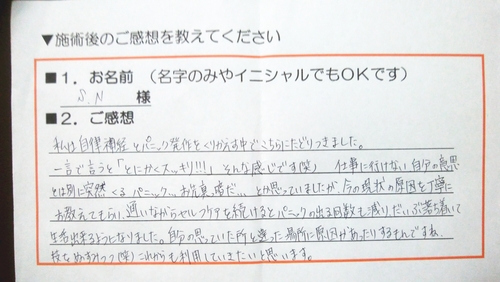 ▼施術後のご感想を教えてください
■1．お名前 （名字のみやイニシャルでもOKです）
S.N 様
■2．ご感想
私は自律神経とパニック発作をくりかえす中でこちらにたどりつきました。
一言で言うと「とにかくスッキリ!!!」そんな感じです(笑) 仕事に行けない 自分の意思
とは別に突然くるパニック、お先真暗だ… と思っていましたが、今の現状の原因を丁寧に
お教えてもらい、通いながらセルフケアを続けるとパニックの出る回数も減りだいぶ落ち着いて
生活出来るようになりました。自分の思っていた所と違った場所に原因があったりするもんですね
技をぬすみつつ(笑)これからも利用していきたいと思います。